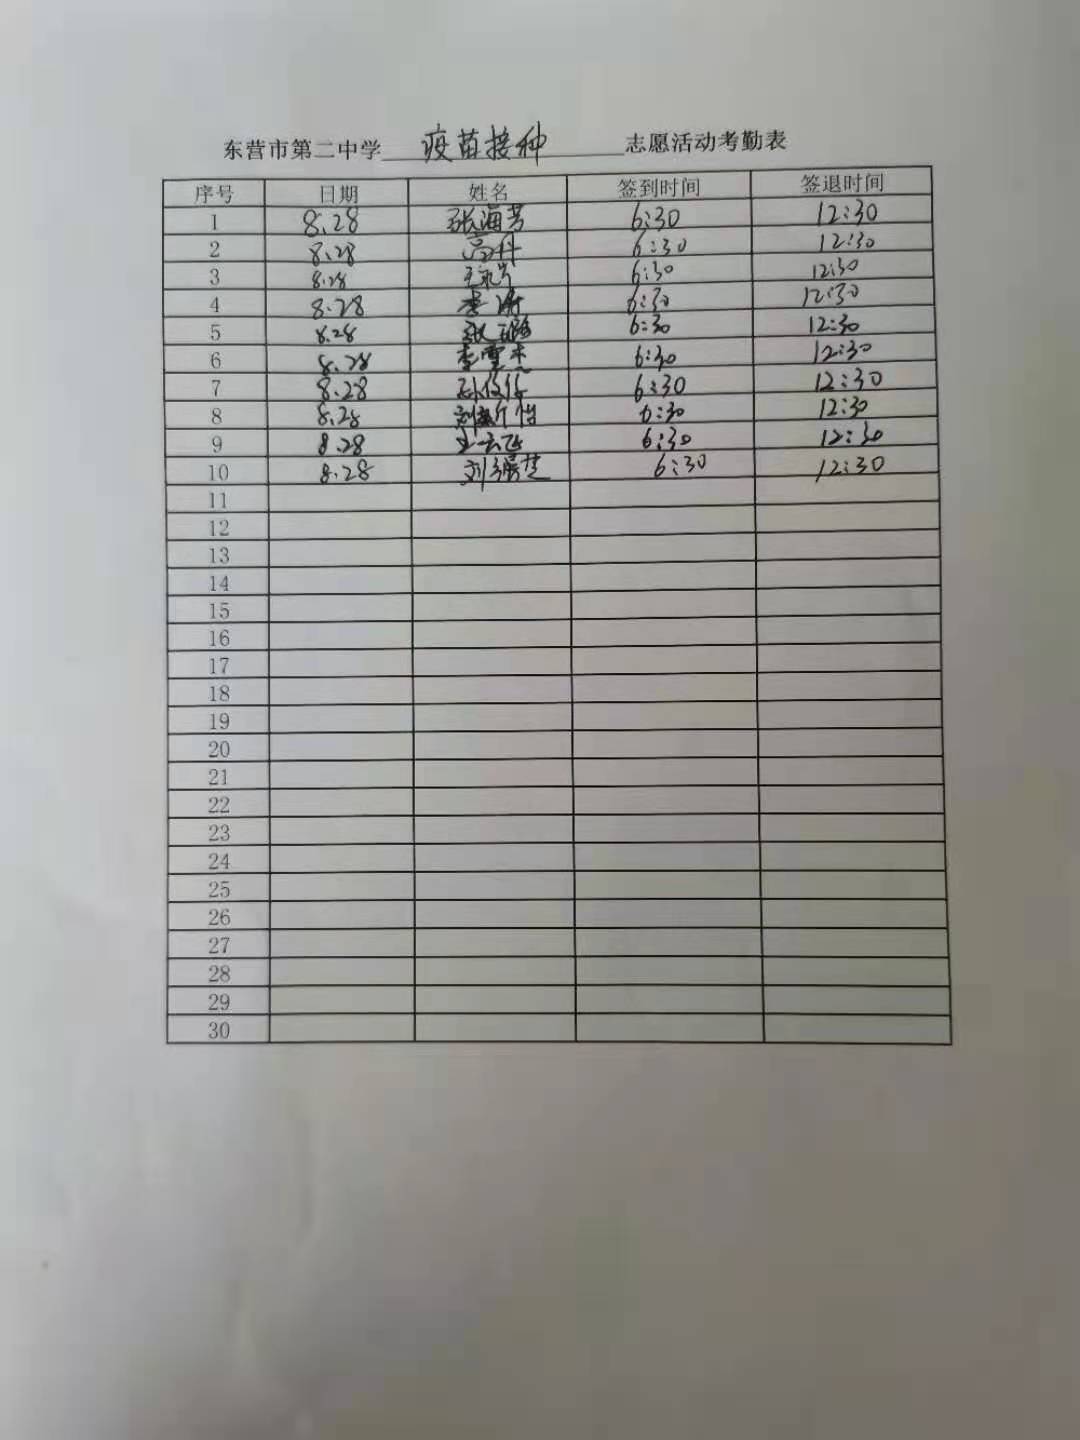 东营市第二中学 疫苗接种 志愿活动考勤表
序号 日期 姓名 签到时间 签退时间
1 8.28 张海芳 6:30 12:30
2 8.28 高丹 6:30 12:30
3 8.28 6:30 12:30
4 8.28 李 6:30 12:30
5 8.28 张 6:30 12:30
6 8.28 李雪杰 6:30 12:30
7 8.28 孙 6:30 12:30
8 8.28 刘 6:30 12:30
9 8.28 6:30 12:30
10 8.28 刘 6:30 12:30
11
12
13
14
15
16
17
18
19
20
21
22
23
24
25
26
27
28
29
30